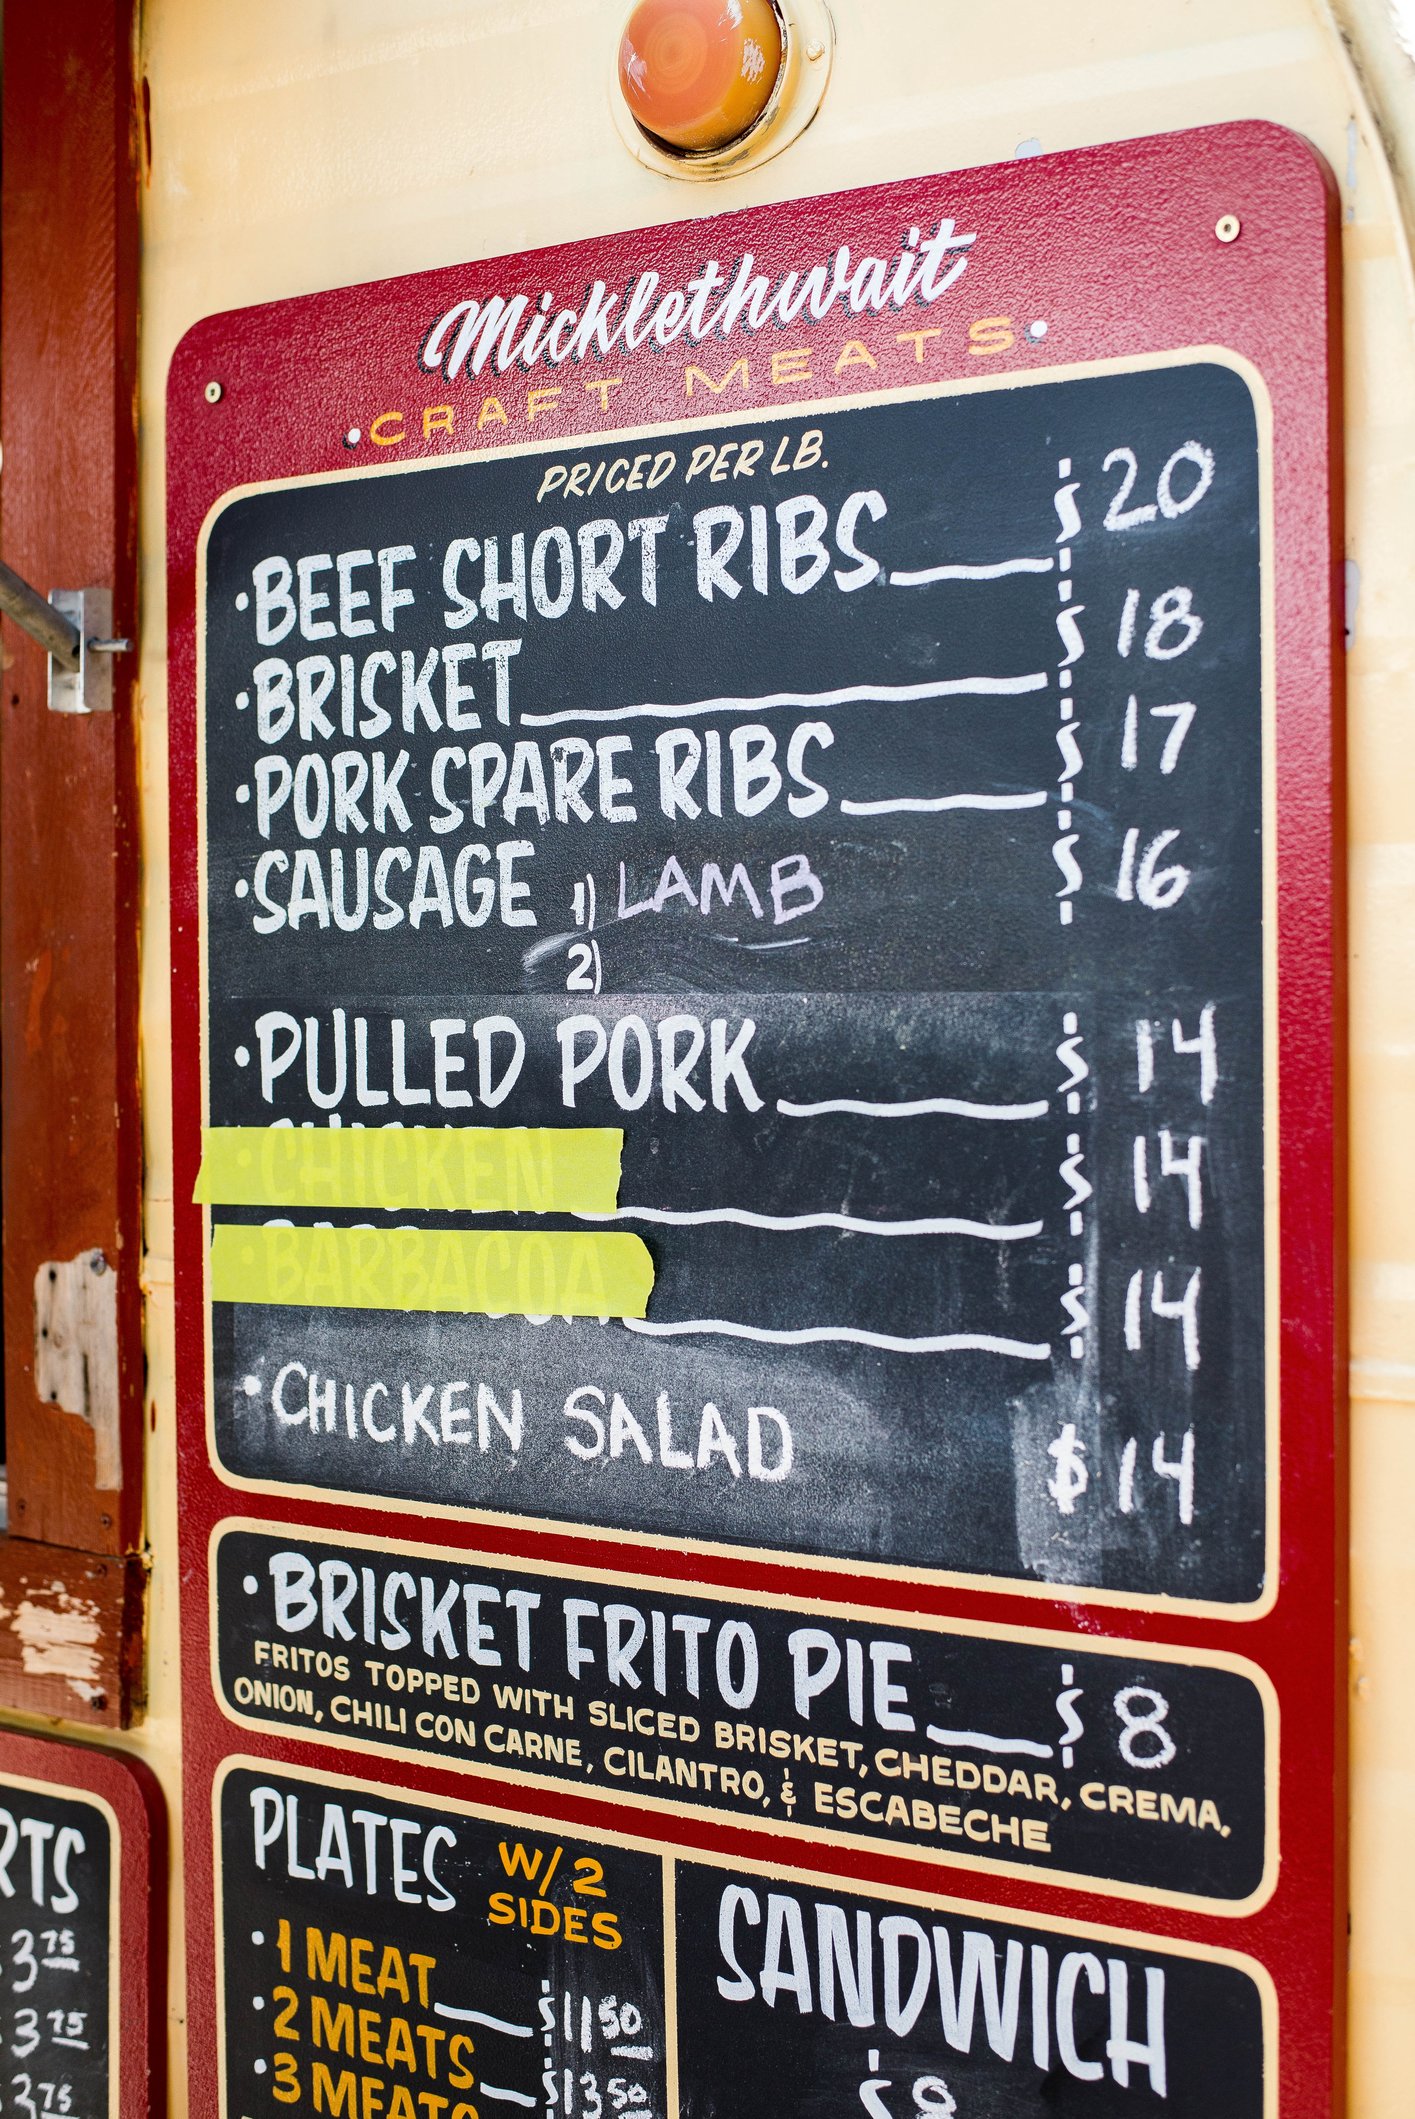 Micklethwait
•CRAFT MEATS•
PRICED PER LB.
•BEEF SHORT RIBS $20
•BRISKET $18
•PORK SPARE RIBS $17
•SAUSAGE 1) LAMB $16
2)
•PULLED PORK $14
•CHICKEN $14
•BARBACOA $14
•CHICKEN SALAD $14
•BRISKET FRITO PIE $8
FRITOS TOPPED WITH SLICED BRISKET, CHEDDAR, CREMA,
ONION, CHILI CON CARNE, CILANTRO, & ESCABECHE
PLATES W/2
SIDES
•1 MEAT $11 50
•2 MEATS $13 50
•3 MEATS
SANDWICH
$8
RTS
3 75
3 75
3 75